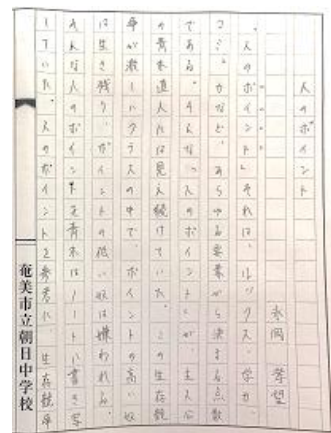 人のポイント
永岡 芽望
「人のポイント」それは、ルックス、学力、
コミュ力など、あらゆる要素から決まる点数
である。そんな「人のポイント」が、主人公
の青木直人には見え続けていた。この生存競
争が激しいクラスの中で、ポイントの高い奴
は生き残り、ポイントの低い奴は嫌われる。
そんな人のポイントを青木はノートに書き写
していた。人のポイントを参考に、生存競争
奄美市立朝日中学校